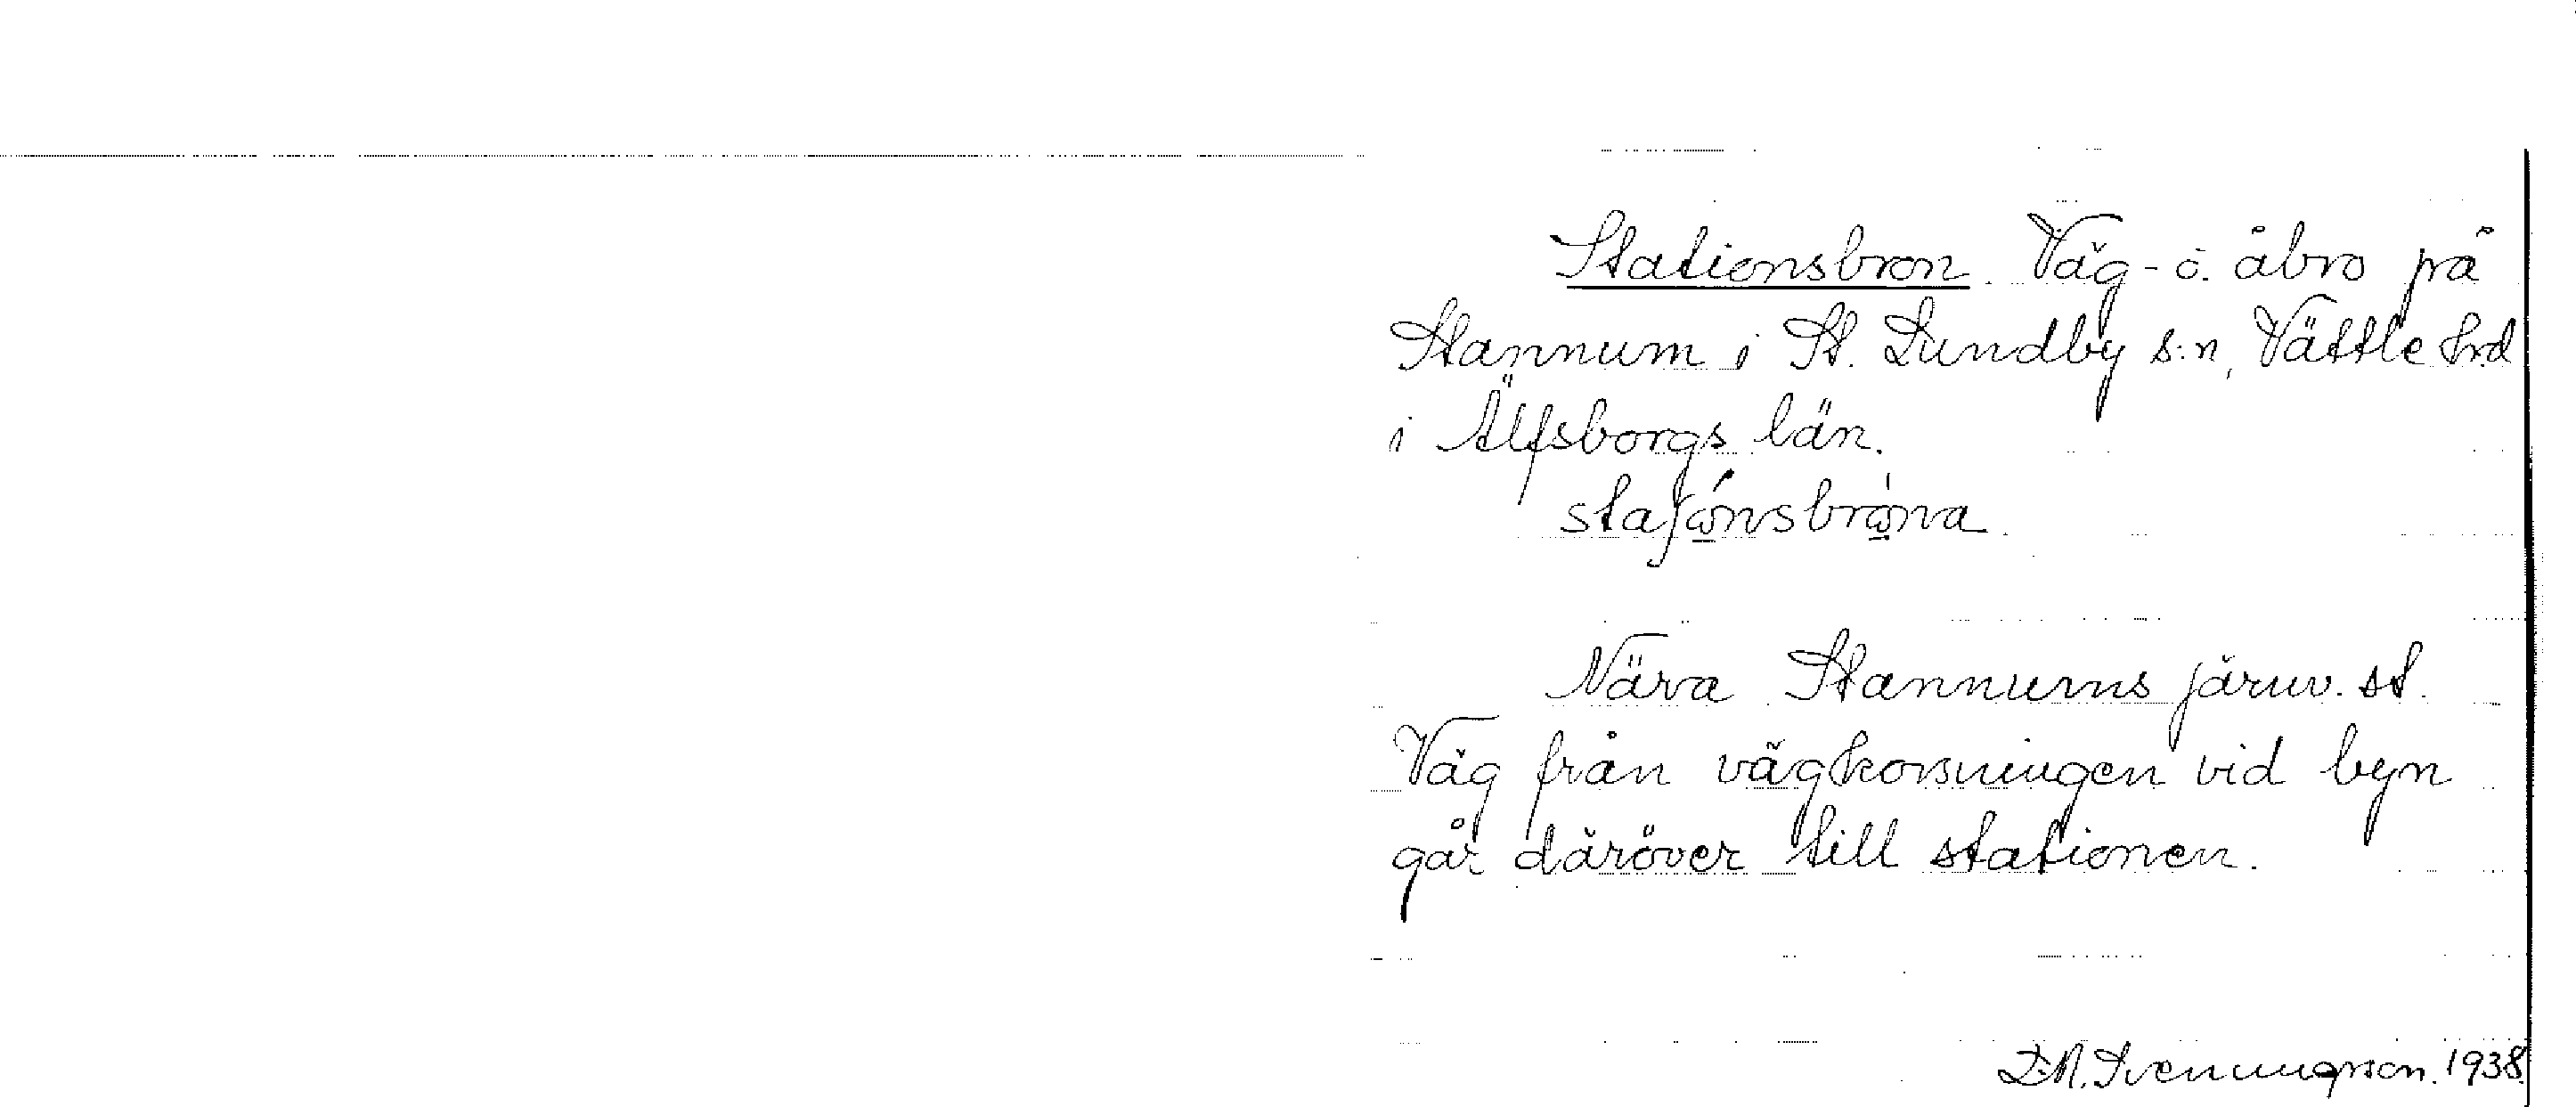 Stationsbron. Väg- o. åbro på
Stannum i St. Lundby s:n, Vättle hrd
i Älfsborgs län.
staʃώ̲nsbrὼ̲na.
Nära Stannums järnv. st.
Väg från vägkorsningen vid byn
går däröver till stationen.
Svenungsson. 1938.